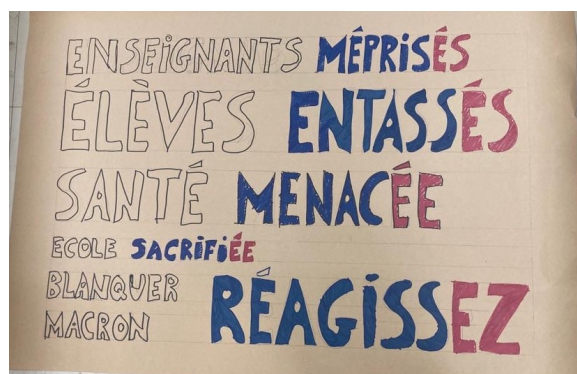 ENSEIGNANTS MÉPRISÉS
ÉLÈVES ENTASSÉS
SANTÉ MENACÉE
ECOLE SACRIFIÉE
BLANQUER
MACRON RÉAGISSEZ